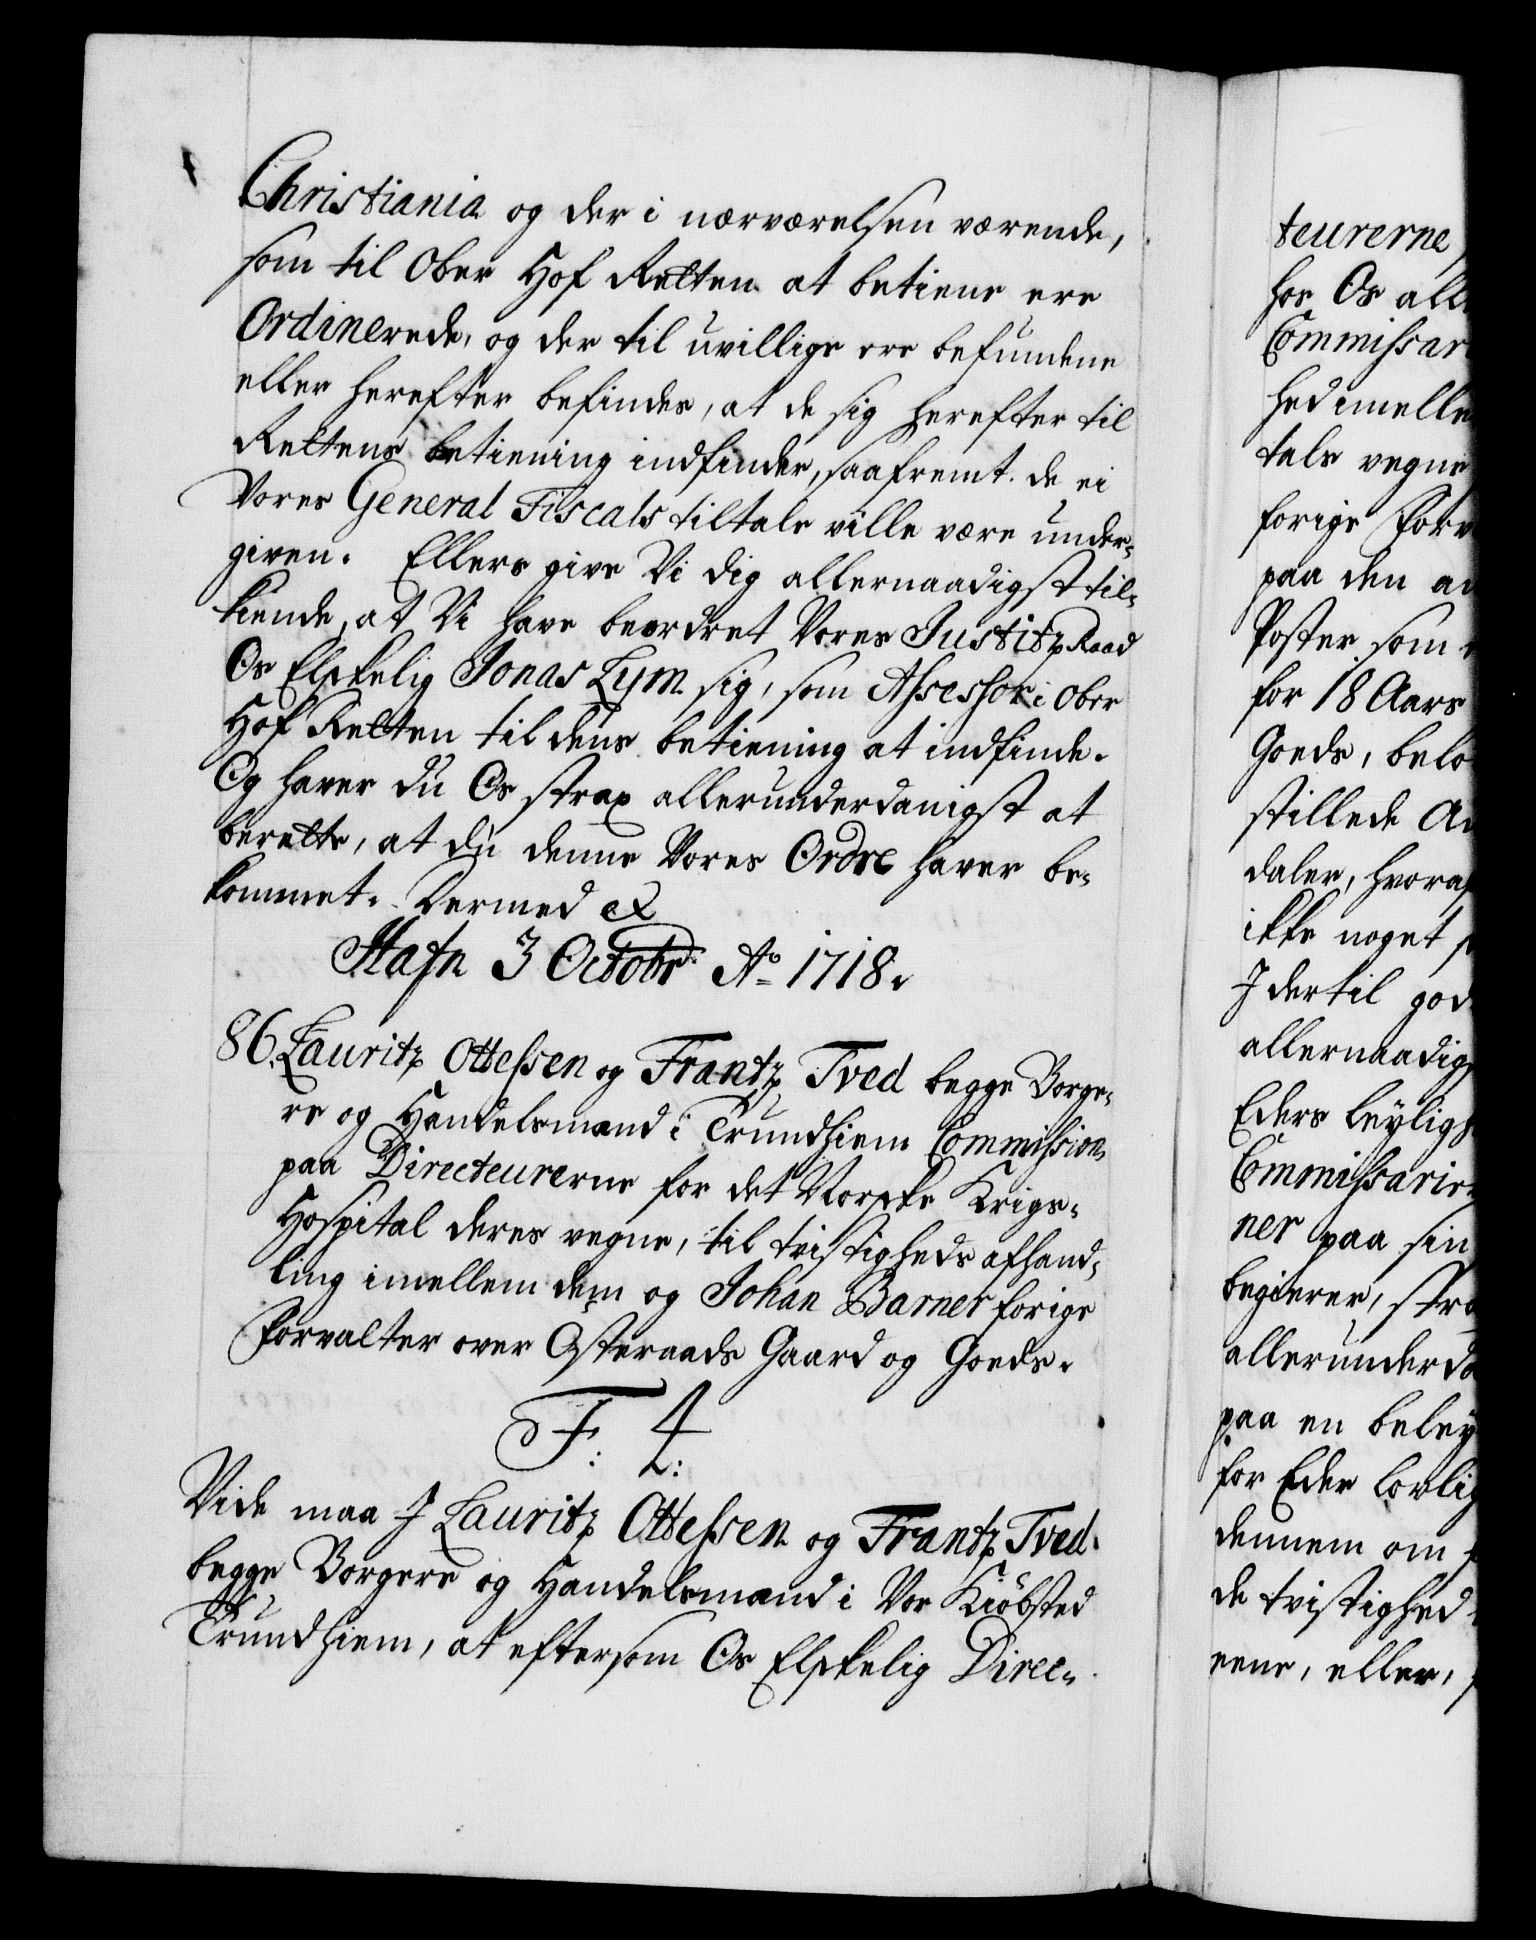 Christiania og der i nærværelsen værende,
som til Ober Hof Retten at betiene ere
Ordinerede, og der til uvillige ere befundene
eller herefter befindes, at de sig herefter til
Rettens betiening indfinder, saafremt de ei
Vores General Fiscals tiltale ville være under-
given. Ellers give Vi dig allernaadigst til-
kiende, at Vi have beordret Vores Justitz Raad
Os Elskelig Jonas Lym sig, som Assessor i Ober
Hof Retten til dens betiening at indfinde.
Og haver du Os strax allerunderdanigst at
berette, at du denne Vores Ordre haver be-
kommet. Dermed &
Hafn 3 Octobr: Ao 1718.
86. Lauritz Ottessen og Frantz Tved begge Borge-
re og Handelsmænd i Trundhiem Commission
paa Directeurerne for det Norske Krigs-
Hospital deres vegne, til tvistigheds afhand-
ling imellem dem og Johan Barner forige
Forvalter over Østeraads Gaard og Goeds.
F: 4:
Vide maa I Lauritz Ottessen og Frantz Tved
begge Borgere og Handelsmænd i Vor Kiöbsted
Trundhiem, at eftersom Os Elskelig Direc-
teurerne
hos Os all
Commissar
hed imelle
tals vegne
forige Forv
paa den a
Poster som
for 18 Aars
Goeds, belø
stillede A
daler, hvoraf
ikke noget
I dertil god
allernaadigs
Eders leyligh
Commissarie
ner paa sin
begierer, stra
allerunderda
paa en beley
for Eder lovlig
dennem om
de tvistighed
eene, eller,